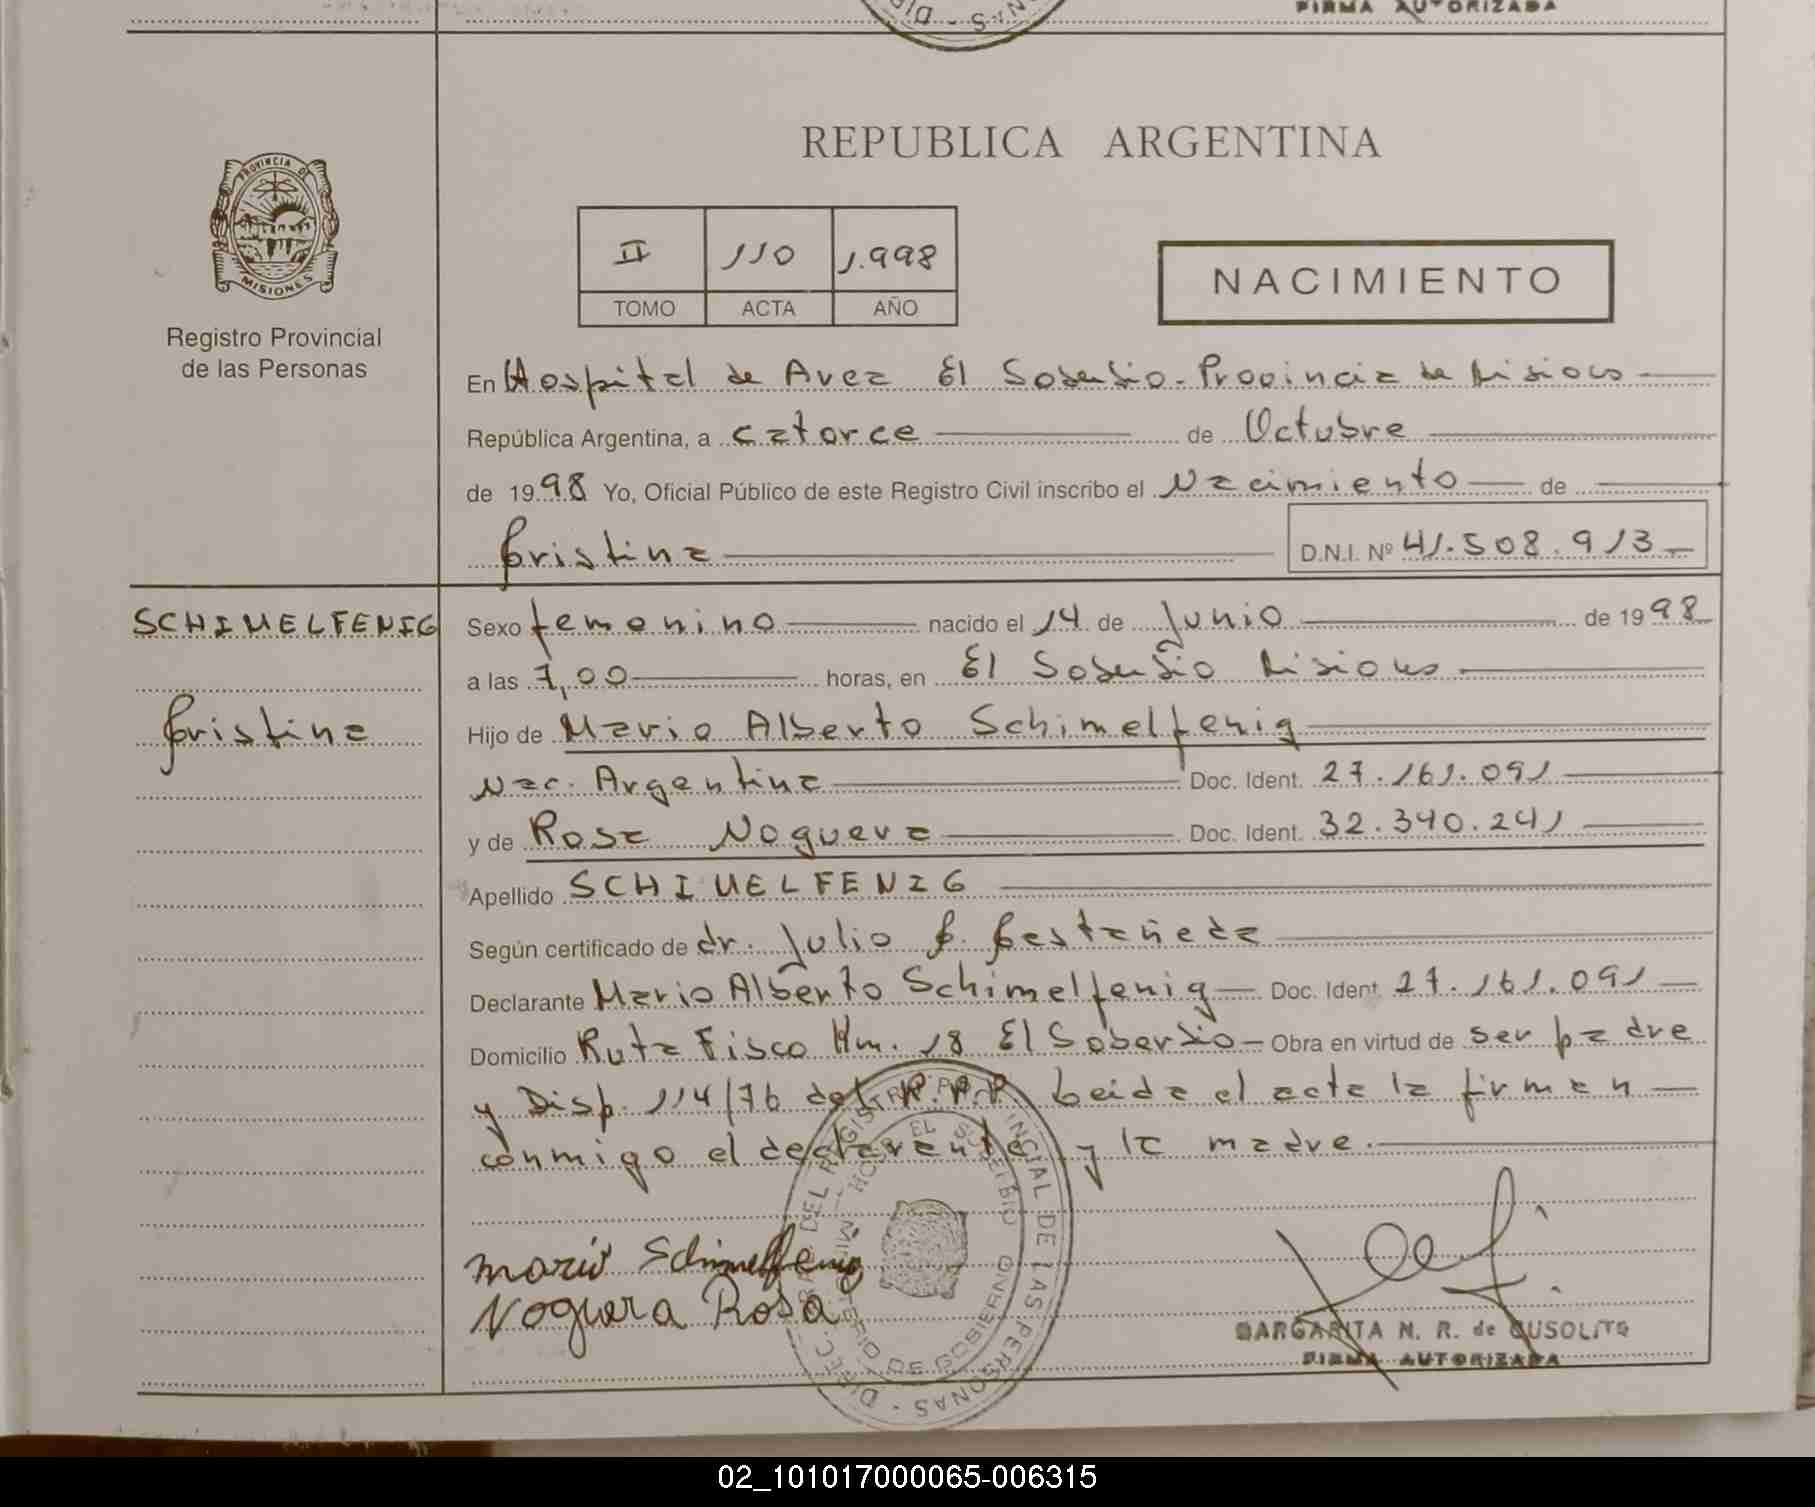 FIRMA AUTORIZADA
REPUBLICA ARGENTINA
PROVINCIA DE
MISIONES
Registro Provincial
de las Personas
II 110 1.998
TOMO ACTA AÑO
NACIMIENTO
En Hospital de Area El Soberbio - Provincia de Misiones
República Argentina, a catorce de Octubre
de 1998 Yo, Oficial Público de este Registro Civil inscribo el Nacimiento de
Cristina D.N.I. Nº 41.508.913
SCHIMELFENIG
Cristina
Sexo femenino nacido el 14 de Junio de 1998
a las 7,00 horas, en El Soberbio Misiones
Hijo de Mario Alberto Schimelfenig
Nac. Argentina Doc. Ident. 27.161.091
y de Rosa Noguera Doc. Ident. 32.340.241
Apellido SCHIMELFENIG
Según certificado de dr. Julio C. Castañeda
Declarante Mario Alberto Schimelfenig Doc. Ident. 27.161.091
Domicilio Ruta Fisco Km. 18 El Soberbio Obra en virtud de ser padre
y Disp. 114/76 del R.P.P. Leida el acta la firman
conmigo el declarante y la madre.
Mario Schimelfenig
Noguera Rosa
MARGARITA N. R. de CUSOLITO
FIRMA AUTORIZADA
02_101017000065-006315